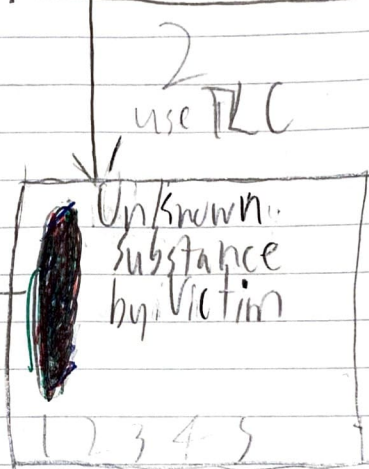 2
use TLC
Unknown
substance
by Victim
1 2 3 4 5